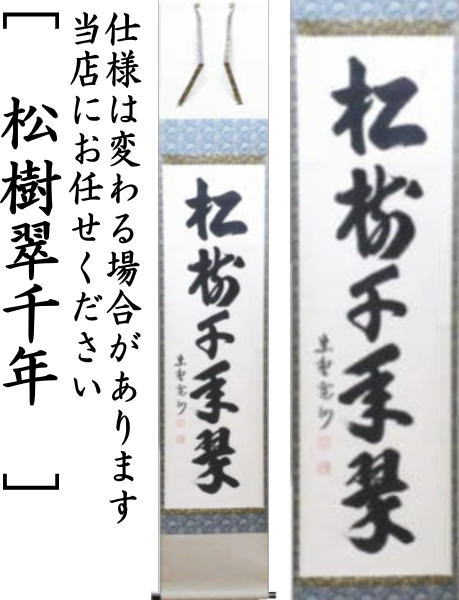 仕様は変わる場合があります
当店にお任せください
[松樹翠千年]
松樹千年翠
松樹千年翠